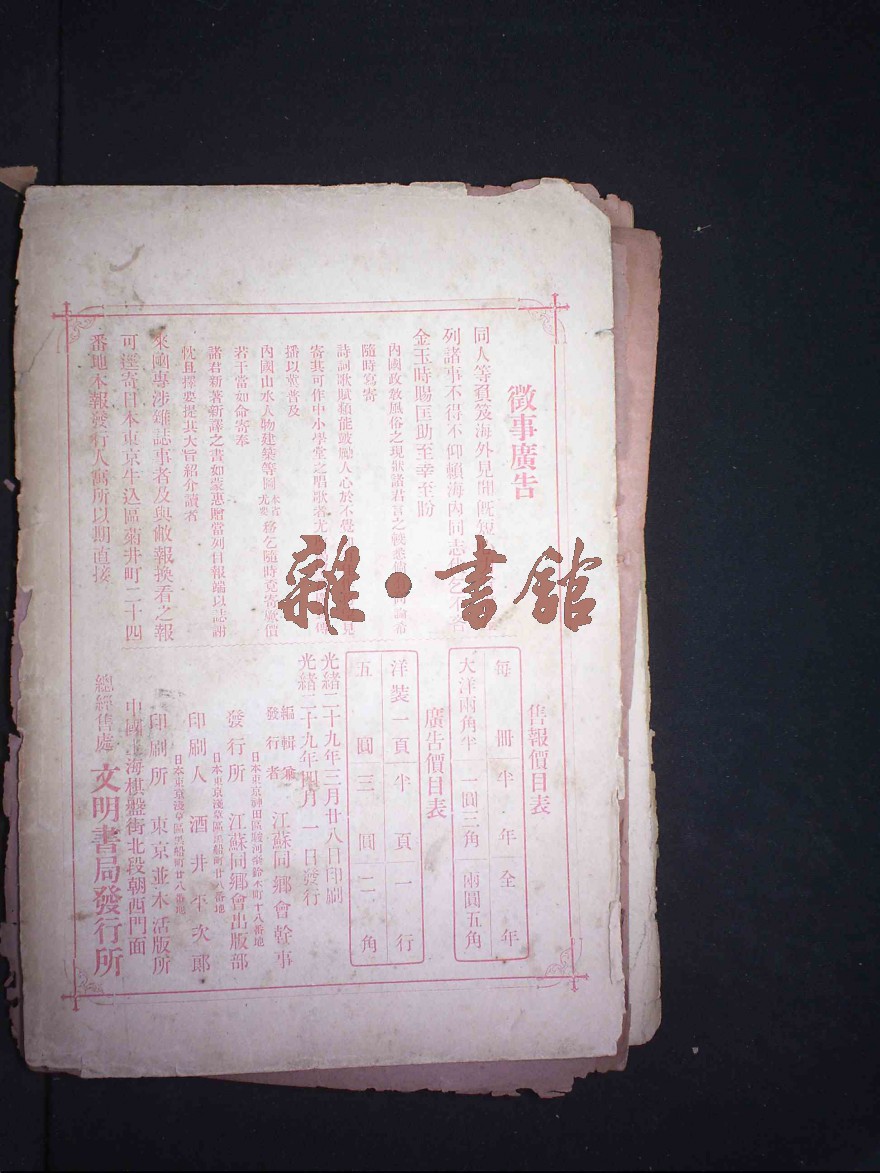 徵事廣告
同人等負笈海外見聞旣短
列諸事不得不仰賴海內同志
金玉時賜匡助至幸至盼
內國政敎風俗之現狀諸君言之
隨時寫寄
詩詞歌賦頗能鼓勵人心於不覺
寄其可作中小學堂之唱歌者尤
播以冀普及
內國山水人物建築等圖本省尤要務乞隨時覓寄厥價
若干當如命寄奉
諸君新著新譯之書如蒙惠贈當列日報端以誌謝
忱且擇要提其大旨紹介讀者
來函專涉雜誌事者及與敝報換看之報
可逕寄日本東京牛込區菊井町二十四
番地本報發行人寓所以期直接
雜·書館
售報價目表
每冊 半年 全年
大洋兩角半 一圓三角 兩圓五角
廣告價目表
洋裝一頁 半頁 一行
五圓 三圓 二角
光緒二十九年三月廿八日印刷
光緒二十九年四月一日發行
編輯兼發行者 江蘇同鄉會幹事
日本東京神田區駿河臺鈴木町十八番地
發行所 江蘇同鄉會出版部
日本東京淺草區黑船町廿八番地
印刷人 酒井平次郎
日本東京淺草區黑船町廿八番地
印刷所 東京並木活版所
中國上海棋盤街北段朝西門面
總經售處 文明書局發行所